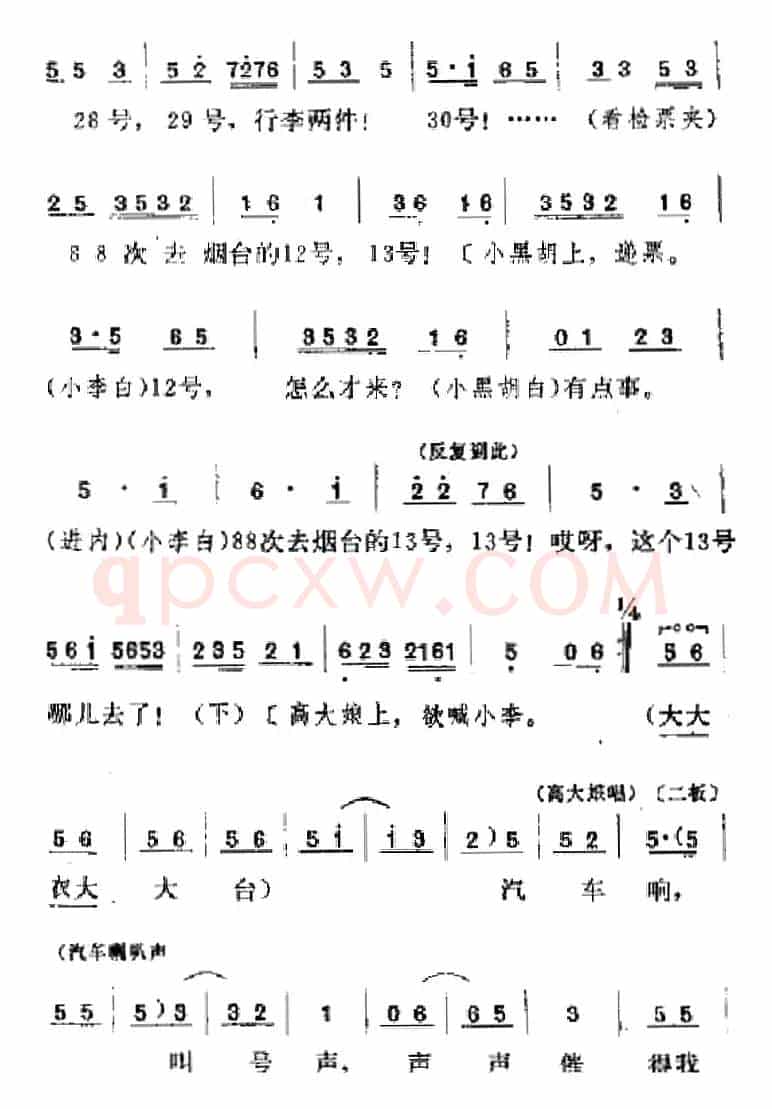 5 5 3 | 5 2 7276 | 5 3 5 | 5·i 6 5 | 3 3 5 3
28号，29号，行李两件！ 30号！……（看检票夹）
2 5 3532 | 1 6 1 | 3 6 1 6 | 3532 1 6 |
88次去烟台的12号，13号！〔小黑胡上，递票。
3·5 6 5 | 3532 1 6 | 0 1 2 3 |
(小李白)12号， 怎么才来？（小黑胡白)有点事。
（反复到此）
5 · i | 6 · i | 2 2 7 6 | 5 · 3
(进内)(小李白)88次去烟台的13号，13号！哎呀，这个13号
qpcxw.COM
1/4
5 6 i 5653 | 2 3 5 2 1 | 6 2 3 2161 | 5 0 6 :| 5 6 |
哪儿去了！（下）〔高大娘上，欲喊小李。 （大大
（高大娘唱）〔二板〕
5 6 | 5 6 | 5 6 | 5 i | i 3 | 2 ) 5 | 5 2 | 5·(5
衣大 大 台） 汽 车 响，
（汽车喇叭声
5 5 | 5 ) 3 | 3 2 | 1 | 0 6 | 6 5 | 3 | 5 5
叫 号 声， 声 声 催 得我